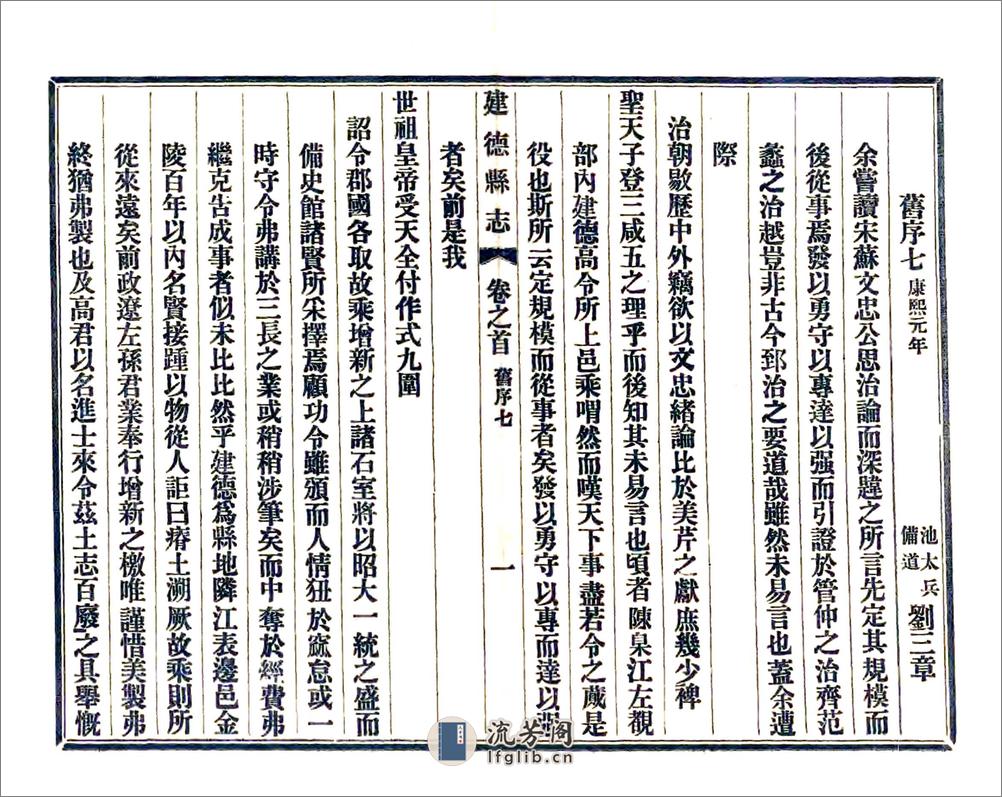 舊序七 康熙元年 池太兵備道 劉三章
余嘗讀宋蘇文忠公思治論而深韙之所言先定其規模而
後從事焉發以勇守以專達以强而引證於管仲之治齊范
蠡之治越豈非古今郅治之要道哉雖然未易言也蓋余遭
際
治朝敭歷中外竊欲以文忠緒論比於美芹之獻庶幾少裨
聖天子登三咸五之理乎而後知其未易言也頃者陳臬江左覩
部內建德高令所上邑乘喟然而嘆天下事盡若令之蕆是
役也斯所云定規模而從事者矣發以勇守以專而達以强
者矣前是我
建德縣志 卷之首 舊序七 一
世祖皇帝受天全付作式九圍
詔令郡國各取故乘增新之上諸石室將以昭大一統之盛而
備史館諸賢所采擇焉顧功令雖頒而人情狃於窳怠或一
時守令弗講於三長之業或稍稍涉筆矣而中奪於經費弗
繼克告成事者似未比比然乎建德爲縣地隣江表邊邑金
陵百年以內名賢接踵以物從人詎曰瘠土溯厥故乘則所
從來遠矣前政遼左孫君業奉行增新之檄唯謹惜美製弗
終猶弗製也及高君以名進士來令茲土志百廢之具舉慨
流芳閣
lfglib.cn